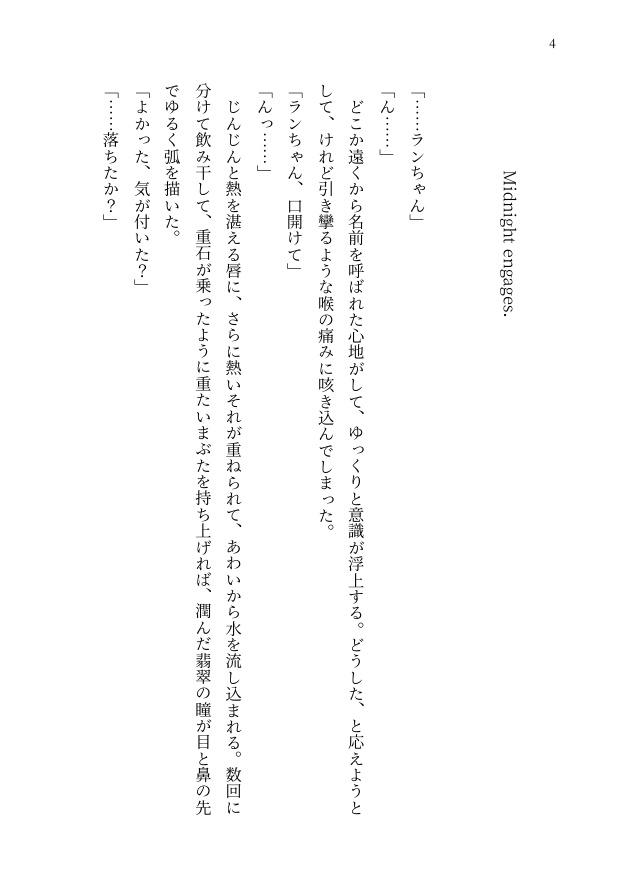 4
Midnight engages.
「……ランちゃん」
「ん……」
　どこか遠くから名前を呼ばれた心地がして、ゆっくりと意識が浮上する。どうした、と応えようと
して、けれど引き攣るような喉の痛みに咳き込んでしまった。
「ランちゃん、口開けて」
「んっ……」
　じんじんと熱を湛える唇に、さらに熱いそれが重ねられて、あわいから水を流し込まれる。数回に
分けて飲み干して、重石が乗ったように重たいまぶたを持ち上げれば、潤んだ翡翠の瞳が目と鼻の先
でゆるく弧を描いた。
「よかった、気が付いた？」
「……落ちたか？」